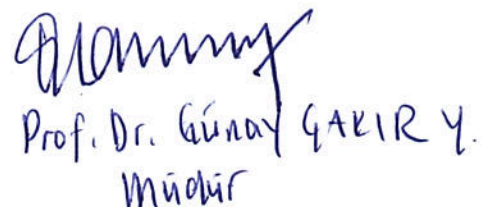 Prof. Dr. Günay ÇAKIR Y.
Müdür